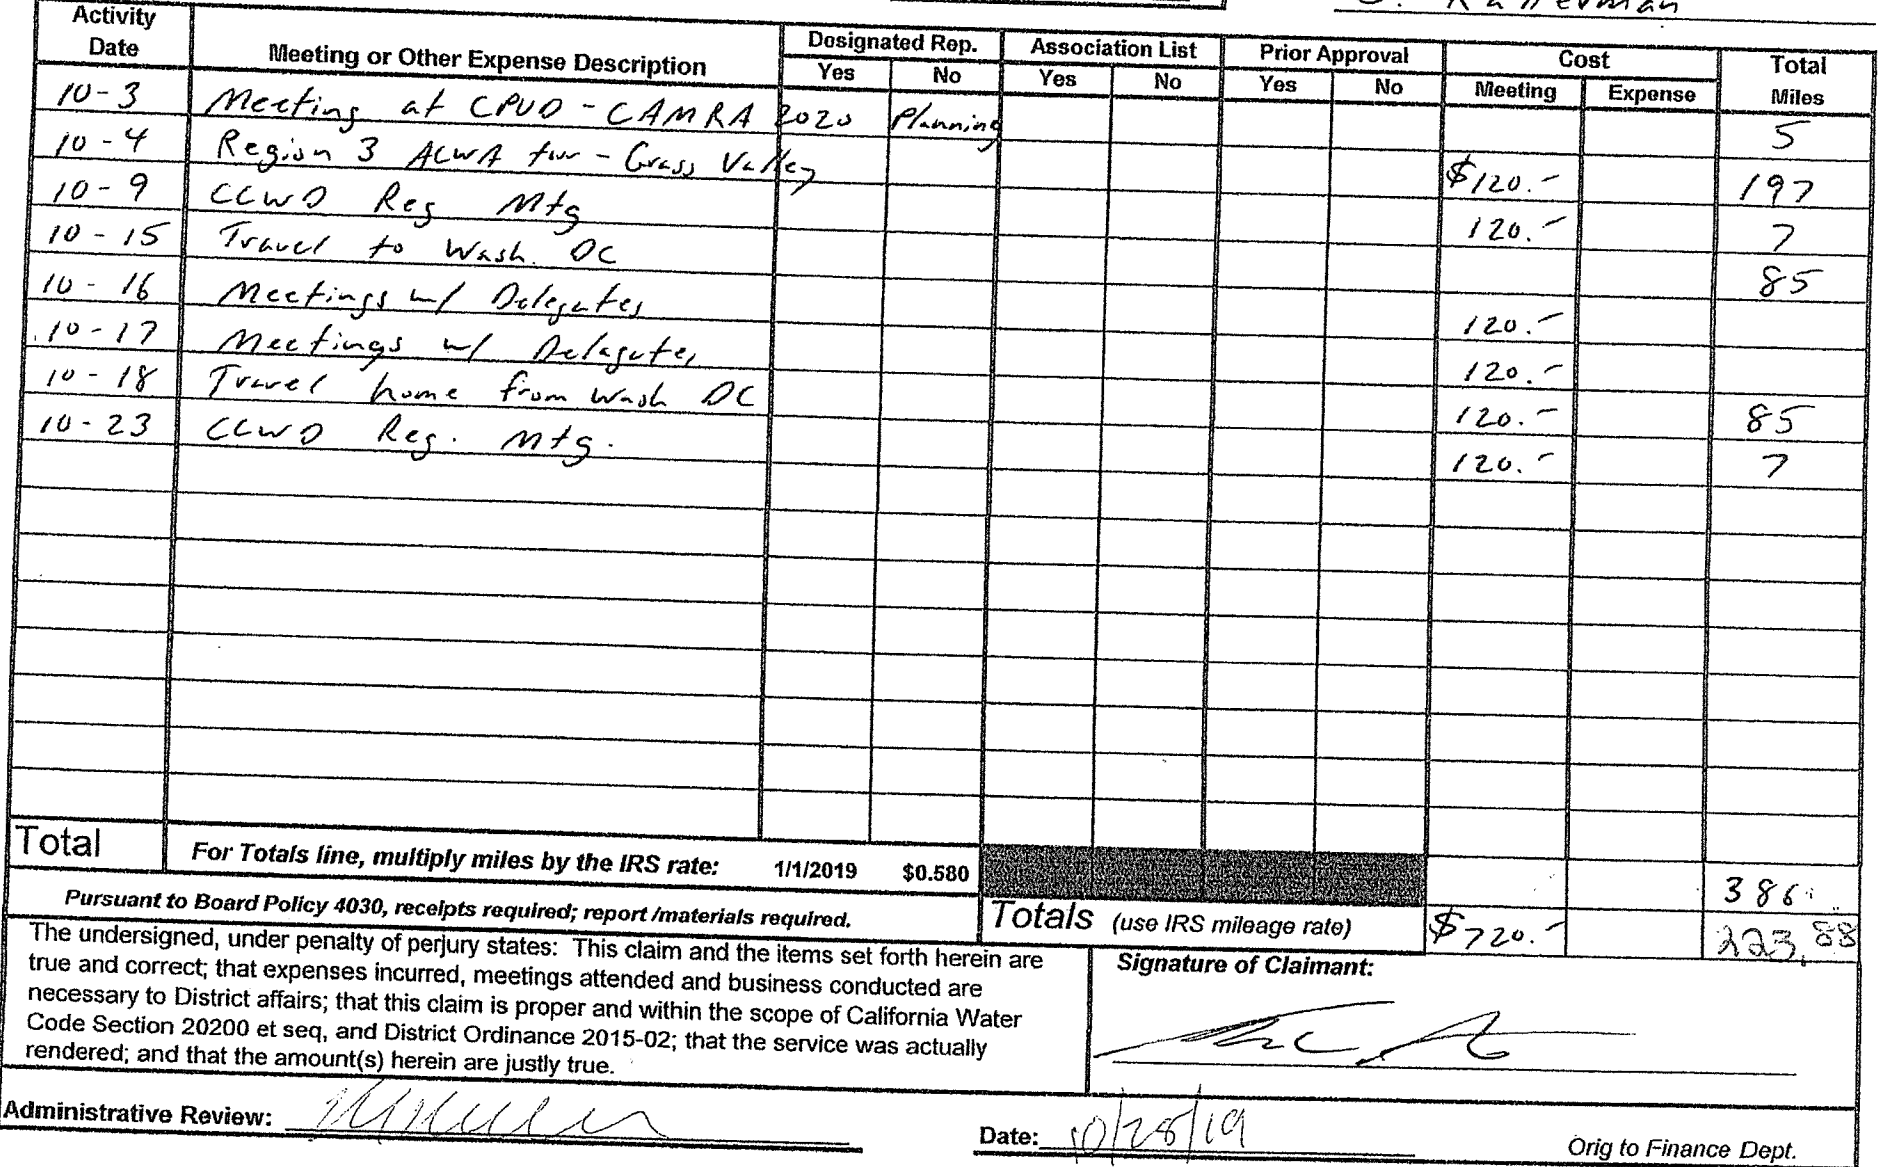 Activity Date Meeting or Other Expense Description Designated Rep. Yes No Association List Yes No Prior Approval Yes No Cost Meeting Expense Total Miles
10-3 Meeting at CPUD - CAMRA 2020 Planning 5
10-4 Region 3 ACWA tour - Grass Valley $120.- 197
10-9 CCWD Reg Mtg 120.- 7
10-15 Travel to Wash. DC 85
10-16 Meetings w/ Delegates 120.-
10-17 Meetings w/ Delagates 120.-
10-18 Travel home from Wash DC 120.- 85
10-23 CCWD Reg. Mtg. 120.- 7
Total For Totals line, multiply miles by the IRS rate: 1/1/2019 $0.580 386
Pursuant to Board Policy 4030, receipts required; report /materials required. Totals (use IRS mileage rate) $720.- 223.88
The undersigned, under penalty of perjury states: This claim and the items set forth herein are
true and correct; that expenses incurred, meetings attended and business conducted are
necessary to District affairs; that this claim is proper and within the scope of California Water
Code Section 20200 et seq, and District Ordinance 2015-02; that the service was actually
rendered; and that the amount(s) herein are justly true.
Signature of Claimant:
Administrative Review: Date: 10/28/19 Orig to Finance Dept.